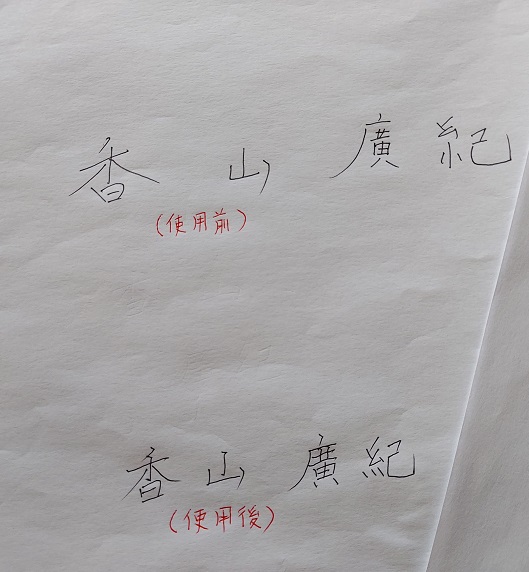 香山 廣紀
(使用前)
香山 廣紀
(使用後)